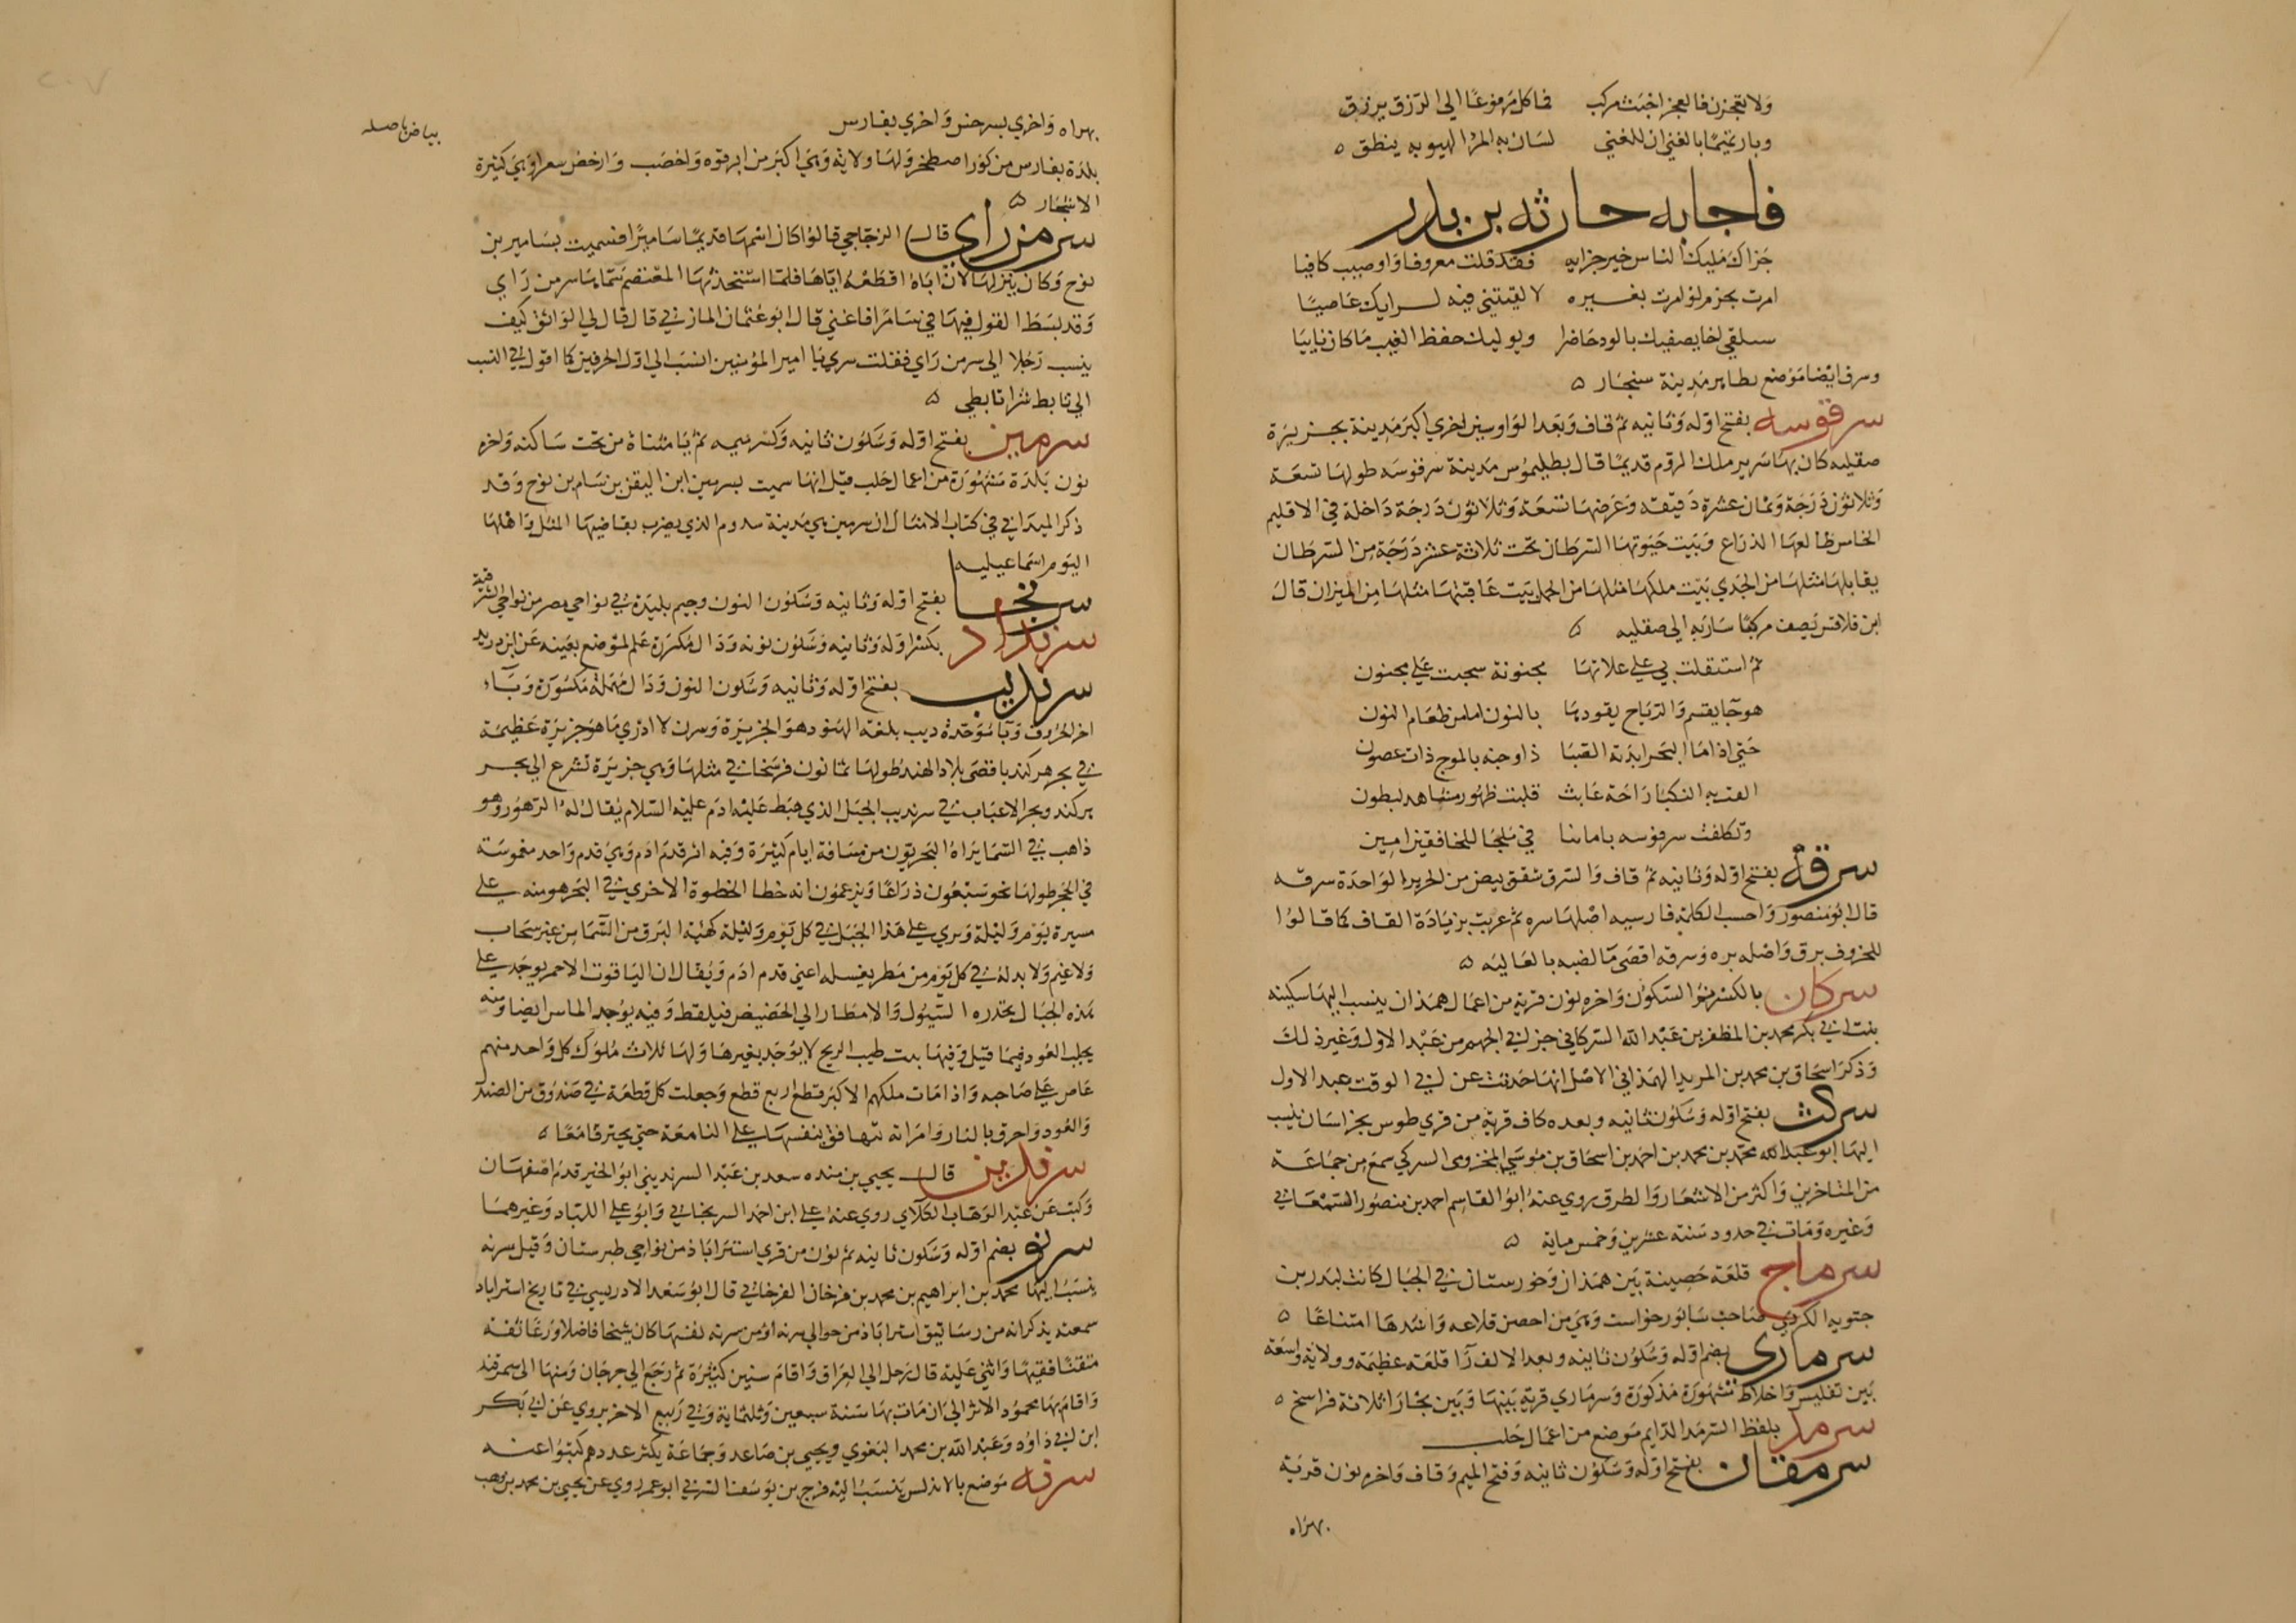 ولا تعجزن فالعجز اخبث مركب فما كل مدفوعا الي الرزق يرزق
وبارز تميما بالغني ان للغني لسانا به المرا الهيوبه ينطق ه
فاجابه حارثه بن بدر
جزاك مليك الناس خير جزايه فقد قلت معروفا واوصيب كافيا
امرت بجزم لو امرت بغيره لالفيتني فيه لرايك عاصيا
ستلقي اخا يصفيك بالود حاضرا ويوليك حفظ الغيب ما كان نايبا
وسرق ايضا موضع بظاهر مدينة سنجار ه
سرقوسه بفتح اوله وثانيه ثم قاف وبعد الواو سين اخري اكبر مدينة بجزيرة
صقليه كان بها سرير ملك الروم قديما قال بطليموس مدينة سرقوسه طولها تسعة
وثلاثون درجة وثمان عشرة دقيقه وعرضها تسعة وثلاثون درجة داخلة في الاقليم
الخامس طالعها الذراع وبيت حبوتها السرطان تحت ثلاثة عشر درجة من السرطان
يقابلها مثلها من الجدي بيت ملكها مثلها من الحمل بيت عاقبتها مثلها من الميزان قال
ابن قلاقس يصف مركبا سار به الي صقليه ه
ثم استقلت بي علي علاتها مجنونة سحبت علي مجنون
هوجا يقسم والرياح يقودها بالنون املمن طعام النون
حتي اذا ما البحر ابدته الصبا ذا وجنه بالموج ذات عصون
القت به النكبا راحة عابث قلبت ظهور مشاهد لبطون
وتكلفت سرقوسه باماننا في ملجا للخافقين امين
سرقة بفتح اوله وثانيه ثم قاف والسرق شقق بيض من الحرير الواحدة سرقه
قال ابو منصور واحسب الكلمة فارسيه اصلها سره ثم عربت بزيادة القاف كما قالوا
للخروف برق واصله بره وسرقه اقصي ما لضبه بالعاليه ه
سركان بالكسر ثم السكون واخره نون قرية من اعمال همذان ينسب اليها سكينه
بنت ابي بكر محمد بن المظفر بن عبد الله السركاني جزلي الجهم من عبد الاول وغير ذلك
وذكر اسحاق بن محمد بن المريد الهمذاني الاصل انها حدثت عن ابي الوقت عبد الاول
سركث بفتح اوله وسكون ثانيه وبعده كاف قرية من قري طوس بخراسان ينسب
اليها ابو عبد الله محمد بن محمد بن احمد بن اسحاق بن موسي المخزومي السركي سمع من جماعة
من المتاخرين واكثر من الاشعار والطرف روي عنه ابو القاسم احمد بن منصور السمعاني
وغيره ومات في حدود سنة عشرين وخمس ماية ه
سرماج قلعة حصينة بين همذان وخورستان في الجبال كانت لبدر بن
حتويه الكردي صاحب سابور خواست وهي من احصن قلاعه واشدها امتناعا ه
سرماري بضم اوله وسكون ثانيه وبعد الالف را قلعة عظيمة وولاية واسعة
بين تفليس واخلاط مشهورة مذكورة وسرماري قرية بينها وبين بخارا ثلاثة فراسخ ه
سرمد بلفظ السرمد الدايم موضع من اعمال حلب
سرمقان بفتح اوله وسكون ثانيه وفتح الميم وقاف واخره نون قرية
بهراه
بهراه واخري بسرخس واخري بفارس
بياض باصله
بلدة بفارس من كور اصطخر ولها ولاية وهي اكبر من ابرقوه واخصب وارخض سعرا وهي كثيرة
الاشجار ه
سر من راي قال الزجاجي قالوا كان اسمها قديما ساميرا فسميت بسامير بن
نوح وكان ينزلها لان اباه اقطعه اياها فلما استحدثها المعتصم سماها سر من راي
وقد بسط القول فيها في سامرا فاغني قال ابو عثمان المازني قال قال لي الواثق كيف
ينسب رجلا الي سر من راي فقلت سري يا امير المؤمنين انسب الي اول الحرفين كما اقول في النسب
الي تابط شرا تابطي ه
سرمين بفتح اوله وسكون ثانيه وكسر ميمه ثم يا مثناة من تحت ساكنه واخره
نون بلدة مشهورة من اعمال حلب قيل انها سميت بسرمين ابن اليفز بن سام بن نوح وقد
ذكر الميداني في كتاب الامثال ان سرمين هي مدينة سدوم الذي يضرب بقاضيها المثل واهلها
اليوم اسماعيليه
سرنجا بفتح اوله وثانيه وسكون النون وجيم بليدة في نواحي مصر من نواحي الشرقية
سرنداد بكسر اوله وثانيه وسكون نونه ودال مكررة علم لموضع بعينه عن ابن دريد
سرنديب بفتح اوله وثانيه وسكون النون ودال مهملة مكسورة وياء
اخر الحروف وبا موحدة ديب بلغة الهنود هو الجزيرة وسرن لا ادري ما هو جزيرة عظيمة
في بحر هركند باقصي بلاد الهند طولها ثمانون فرسخا في مثلها وهي جزيرة تشرع الي بحر
هركند وبحر الاعباب في سرنديب الجبل الذي هبط عليه ادم عليه السلام يقال له الرهون وهو
ذاهب في السما يراه البحريون من مسافة ايام كثيرة وفيه اثر قدم ادم وهي قدم واحد مغموسة
في الحجر طولها نحو سبعون ذراعا ويزعمون انه خطا الخطوة الاخري في البحر هو منه علي
مسيرة يوم وليلة ويري علي هذا الجبل في كل يوم وليلة كهية البرق من السما من غير سحاب
ولا غيم ولا بد له في كل يوم من مطر يغسله اعني قدم ادم ويقال ان الياقوت الاحمر يوجد علي
هذه الجبال يحدره السيول والامطار الي الحضيض فيلقط وفيه يوجد الماس ايضا ومنه
يجلب العود فيما قيل وفيها بدت طيب الريح لا يوجد بغيرها ولها ثلاث ملوك كل واحد منهم
عاص علي صاحبه واذا مات ملكهم الاكبر قطع اربع قطع وجعلت كل قطعة في صندوق من الصندل
والعود واحرق بالنار وامراته تتهافق بنفسها علي النا معه حتي يحترقا معا ه
سرندين قال يحيي بن منده سعد بن عبد السرنديني ابو الخير قدم اصفهان
وكتب عن عبد الوهاب الكلاي روي عنه علي ابن احمد السريخاني وابو علي اللباد وغيرهما
سرنو بضم اوله وسكون ثانيه ثم نون من قري استراباذ من نواحي طبرستان وقيل سرنه
ينسب اليها محمد بن ابراهيم بن محمد بن فرخان الفرخاني قال ابو سعد الادريسي في تاريخ استراباد
سمعته يذكر انه من رساتيق استراباذ من حوالي سرنه او من سرنه نفسها كان شيخا فاضلا ورعا ثقة
متقنا فقيها واثني عليه قال رحل الي العراق واقام سنين كثيرة ثم رجع الي جرجان ومنها الي سمرقند
واقام بها محمود الاثر الي ان مات بها سنة سبعين وثلثماية وفي ربيع الاخر يروي عن ابي بكر
ابن ابي داود وعبد الله بن محمد البغوي ويحيي بن صاعد وجماعة يكثر عددهم كتبوا عنه
سرنه موضع بالاندلس ينسب اليه فرج بن يوسف السرني ابو عمر روي عن يحيي بن محمد بن وهب